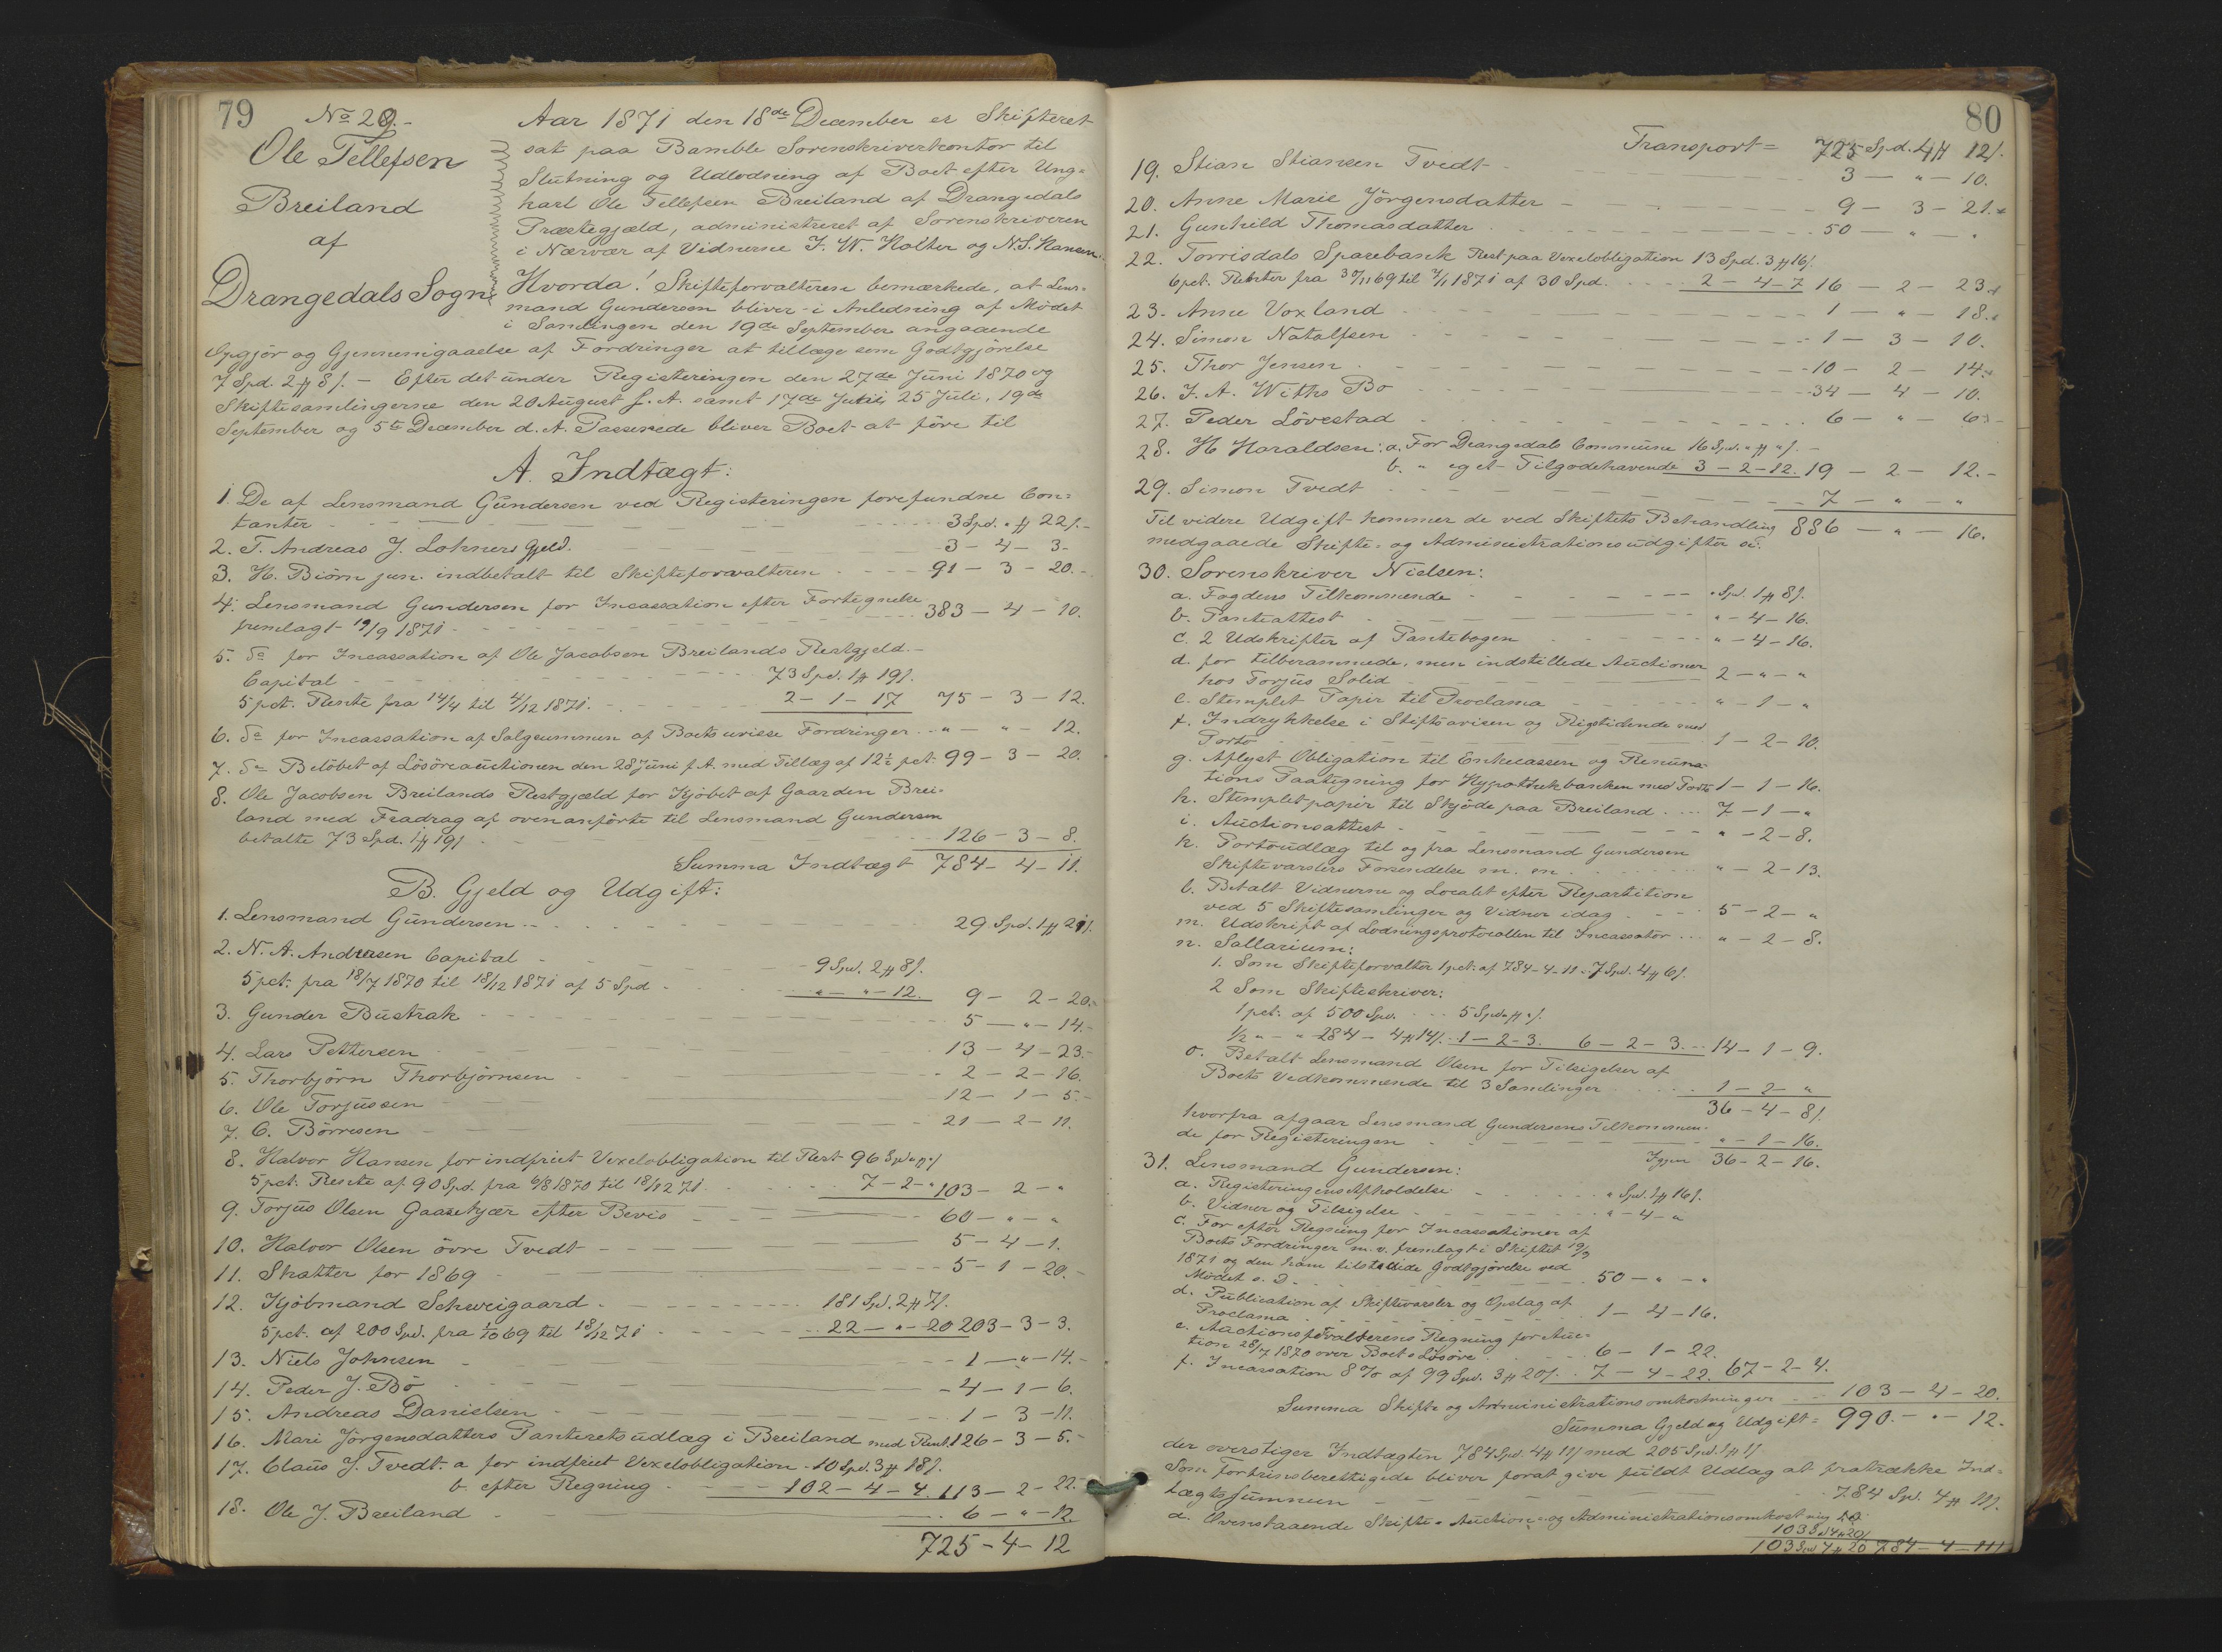 79
No 29.-
Ole Tellefsen
Breiland
af
Drangedals Sogn
Aar 1871 den 18de December er Skifteret
sat paa Bamble Sorenskriverkontor til
Slutning og Udlodning af Boet efter Ung=
karl Ole Tellefsen Breiland af Drangedals
Præstegjæld, administreret af Sorenskriveren
i Nærvær af Vidnerne J. W. Holter og N. S. Hansen.
Hvorda! Skifteforvalteren bemærkede, at Lens=
mand Gundersen bliver i Anledning af Mødet
i Samlingen den 19de September angaaende
Opgjör og Gjennemgaaelse af Fordringer at tillægge som Godtgjörelse
7 Spd. 2 # 8 /. - Efter det under Registeringen den 27de Juni 1870 og
Skiftesamlingerne den 20 August f. A. samt 17de Juli 25 Juli, 19de
September og 5te December d. A. Passerede bliver Boet at före til
A. Indtægt:
1. De af Lensmand Gundersen ved Registeringen forefundne Con=
tanter 3 Spd. " # 22 /. -
2. T. Andreas J. Lohners Gjeld. 3 - 4 - 3 -
3. H. Biörn jun. indbetalt til Skifteforvalteren 91 - 3 - 20. -
4. Lensmand Gundersen for Incassation efter Fortegnelse
fremlagt 19/9 1871 383 - 4 - 10.
5. Do for Incassation af Ole Jacobsen Breilands Restgjeld. -
Capital 73 Spd. 1 # 19 /.
5 pct. Rente fra 14/4 til 4/12 1871. 2 - 1 - 17 75 - 3 - 12.
6. Do for Incassation af Salgsummen af Boets uvisse Fordringer " - " - 12.
7. Do Belöbet af Lösöreauctionen den 28 Juni f. A. med Tillæg af 12½ pct. 99 - 3 - 20.
8. Ole Jacobsen Breilands Restgjæld for Kjöbet af Gaarden Brei=
land med Fradrag af ovenanförte til Lensmand Gundersen
betalte 73 Spd. 1 # 19 / 126 - 3 - 8.
Summa Indtægt 784 - 4 - 11.
B. Gjeld og Udgift:
1. Lensmand Gundersen 29 Spd. 1 # 21 /.
2. N. A. Andersen Capital 9 Spd. 2 # 8 /.
5 pct. fra 18/7 1870 til 18/12 1871 af 5 Spd " - " - 12. 9 - 2 - 20.
3. Gunder Bustrak 5 - " - 14.
4. Lars Pettersen 13 - 4 - 23.
5. Thorbjörn Thorbjörnsen 2 - 2 - 16.
6. Ole Torjussen 12 - 1 - 5. -
7. C. Börresen 21 - 2 - 11.
8. Halvor Hansen for indfriet Vexelobligation til Rest 96 Spd " # " /
5 pct. Rente af 90 Spd. fra 6/8 1870 til 18/12 71. 7 - 2 - " 103 - 2 - "
9. Torjus Olsen Gaasekjær efter Bevis 60 - " - "
10. Halvor Olsen övre Tvedt 5 - 4 - 1.
11. Skatter for 1869 5 - 1 - 20. -
12. Kjöbmand Schweigaard 181 Spd. 2 # 7 /.
5 pct. af 200 Spd. fra 1/10 69 til 18/12 71 22 - " - 20 203 - 3 - 3.
13. Niels Johnsen 1 - " - 14. -
14. Peder J. Bö 4 - 1 - 6.
15. Andreas Danielsen 1 - 3 - 11.
16. Mari Jörgensdatters Panteretsudlæg i Breiland med Rent. 126 - 3 - 5. -
17. Claus J. Tvedt. a for indfriet Vexelobligation - 10 Spd. 3 # 18 /.
b. efter Regning 102 - 4 - 4. 113 - 2 - 22.
18. Ole J. Breiland 6 - " - 12.
725 - 4 - 12
80
Transport = 725 Spd. 4 # 12 /.
19. Stian Stiansen Tvedt 3 - " - 10.
20. Anne Marie Jörgensdatter 9 - 3 - 21.
21. Gunhild Thomasdatter 50 - " - "
22. Torrisdals Sparebank Rest paa Vexelobligation 13 Spd. 3 # 16 /.
6 pct. Renter fra 30/11 69 til 4/1 1871 af 30 Spd. 2 - 4 - 7 16 - 2 - 23.
23. Anne Voxland 1 - " - 18.
24. Simon Natalfsen 1 - 3 - 10.
25. Thor Jensen 10 - 2 - 14.
26. J. A. Withs Bo 34 - 4 - 10.
27. Peder Lövestad 6 - " - 6.
28. H Haraldsen: a, For Drangedals Commune 16 Spd. " # " /. -
b. " eget Tilgodehavende 3 - 2 - 12. 19 - 2 - 12. -
29. Simon Tvedt 7 - " - "
886 - " - 16.
Til videre Udgift kommer de ved Skiftets Behandling
medgaaede Skifte= og Administrationsudgifter s:
30. Sorenskriver Nielsen:
a. Fogdens Tilkommende " Spd. 1 # 8 /.
b. Panteattest " - 4 - 16.
c. 2 Udskrifter af Pantebogen " - 4 - 16.
d. for tilberammede, men indstillede Auctioner
hos Torjus Solid 2 - " - "
e. Stemplet Papir til Proclama " - 1 - "
f. Indrykkelse i Stiftsavisen og Rigstidende med
Porto 1 - 2 - 10.
g. Aflyst Obligation til Enkecassen og Renuncia=
tions Paategning for Hypothekbanken med Porto 1 - 1 - 16.
h. Stempletpapir til Skjöde paa Breiland 7 - 1 - "
i. Auctionsattest " - 2 - 8.
k. Portoudlæg til og fra Lensmand Gundersen
Skiftevarslers Forsendelse m. m. " - 2 - 13.
l. Betalt Vidnerne og Localet efter Repartition
ved 5 Skiftesamlinger og Vidner idag 5 - 2 - "
m. Udskrift af Lodningsprotocollen til Incassator " - 2 - 8.
n. Sallarium:
1. Som Skifteforvalter 1 pct. af 784 - 4 - 11 - 7 Spd. 4 # 6 /.
2 Som Skifteskriver:
1 pct. af 500 Spd. 5 Spd " # " /.
1/2 " - " 284 - 4 # 14 /. 1 - 2 - 3. 6 - 2 - 3. 14 - 1 - 9.
o. Betalt Lensmand Olsen for Tilsigelser af
Boets Vedkommende til 3 Samlinger 1 - 2 - "
36 - 4 - 8 /.
hvorfra afgaar Lensmand Gundersens Tilkommen=
de for Registeringen " - 1 - 16.
Igjen 36 - 2 - 16.
31. Lensmand Gundersen:
a. Registeringens Afholdelse " Spd. 1 # 16 /.
b. Vidner og Tilsigelse " - 4 - "
c. For efter Regning for Incassationer af
Boets Fordringer m. v. fremlagt i Skiftet 19/9
1871 og den ham tilstaaede Godtgjörelse ved
Mödet s. D. 50 - " - "
d. Publication af Skiftevarsler og Opslag af
Proclama 1 - 4 - 16.
e. Auctionsforvalterens Regning for Auc=
tion 28/7 1870 over Boets Lösöre 6 - 1 - 22.
f. Incassation 8 % af 99 Spd. 3 # 20 /. 7 - 4 - 22. 67 - 2 - 4.
Summa Skifte og Administrationsomkostninger 103 - 4 - 20.
Summa Gjeld og Udgift = 990. - " - 12.
der overstiger Indtægten 784 Spd. 4 # 11 / med 205 Spd. 1 # 1 /.
Som Fortrinsberettigede bliver forat give fuldt Udlæg at fratrække Ind=
tægtssummen 784 Spd. 4 # 11 /.
a. Ovenstaaende Skifte= Auction= og Administrationsomkostning
103 Spd 4 # 20 /
103 Spd 4 # 20 784 - 4 - 11